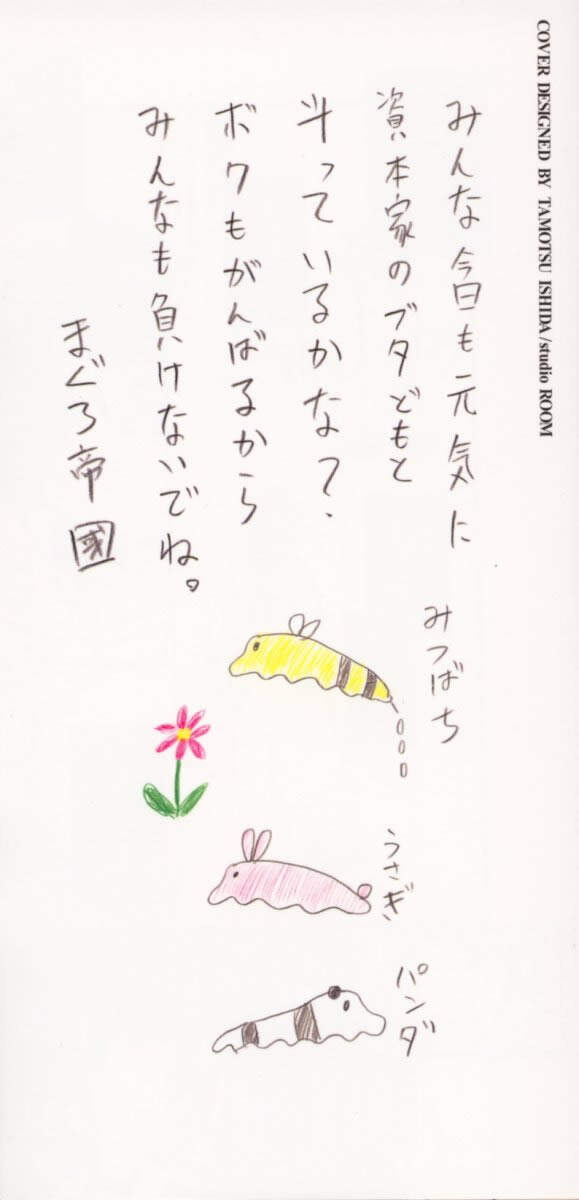 COVER DESIGNED BY TAMOTSU ISHIDA/studio ROOM
みんな今日も元気に
資本家のブタどもと
斗っているかな?
ボクもがんばるから
みんなも負けないでね。
まぐろ帝國
みつばち
うさぎ
パンダ